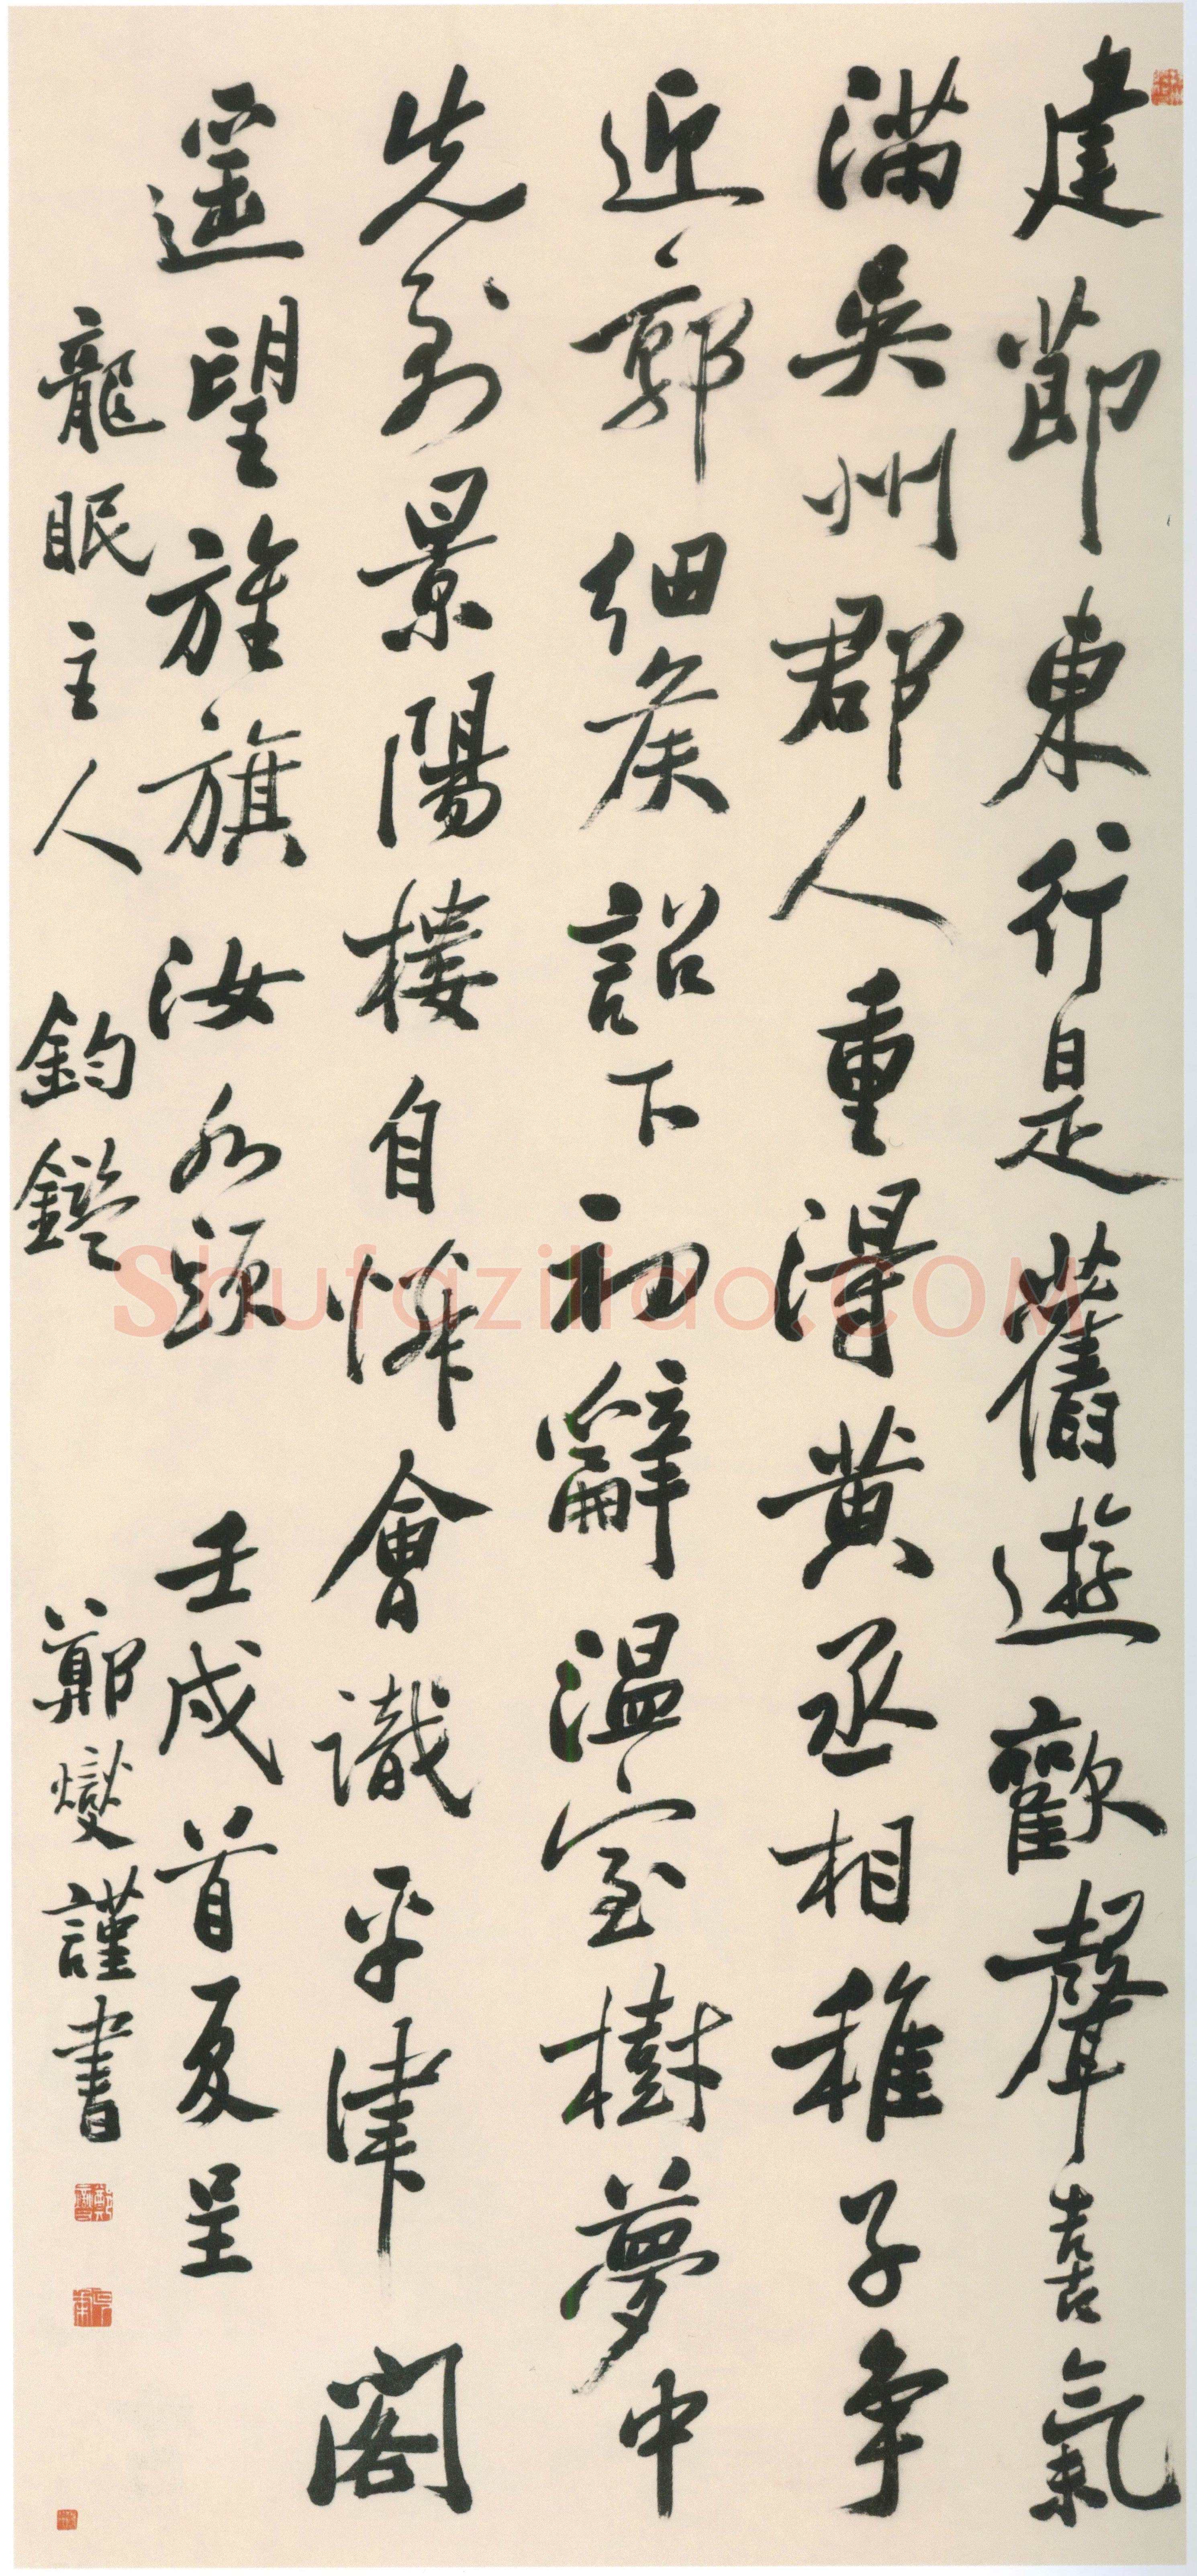 建節東行是舊遊歡聲喜氣
滿吳州郡人重得黃丞相稚子争
迎郭細侯詔下初辭温室樹夢中
先到景陽樓自憐不識平津閣
遥望旌旗汝水頭 壬戌首夏呈
龍眠主人 鈞鑑 鄭燮謹書
Shufaziliao.COM